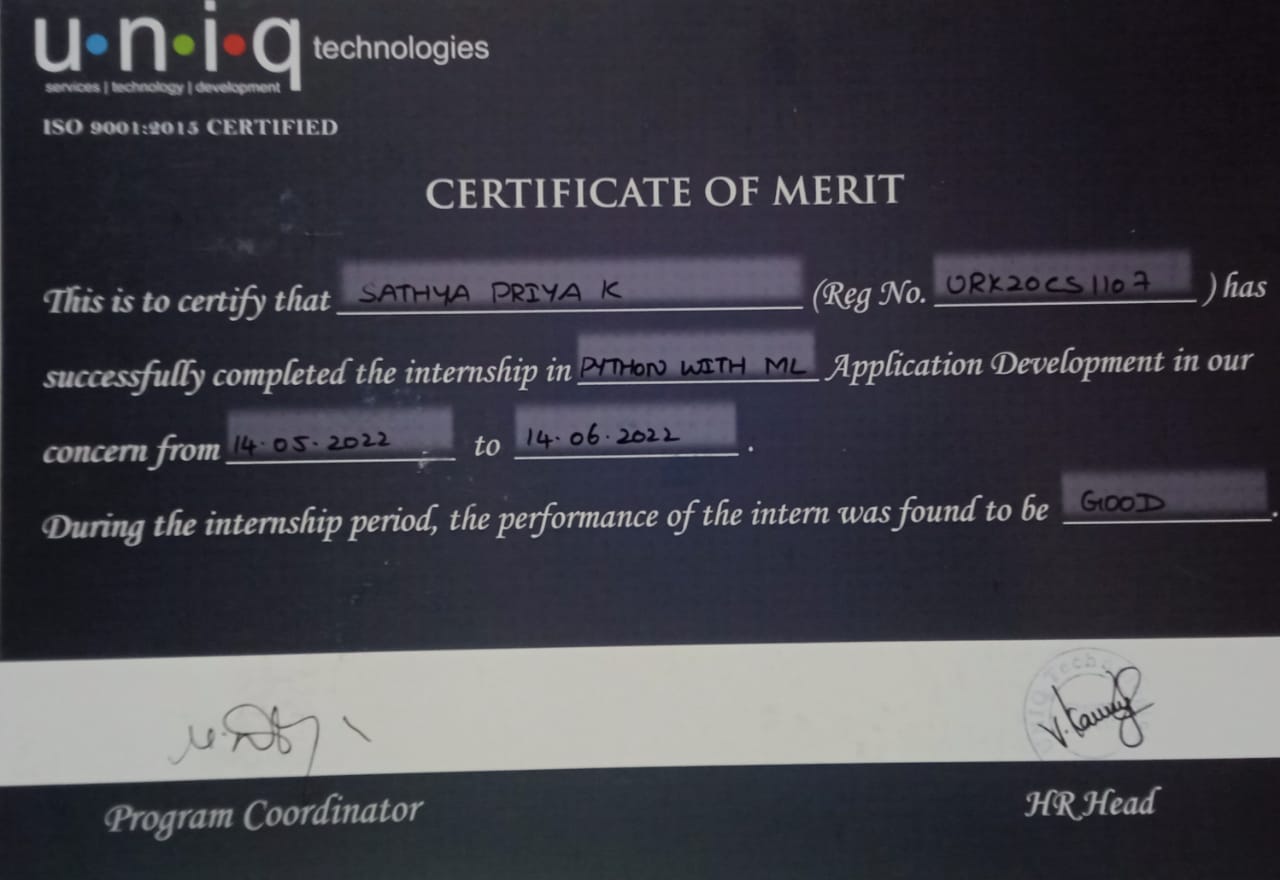 u·n·i·q technologies
services | technology | development
ISO 9001:2015 CERTIFIED
CERTIFICATE OF MERIT
This is to certify that SATHYA PRIYA K (Reg No. URK20CS1107 ) has
successfully completed the internship in PYTHON WITH ML Application Development in our
concern from 14.05.2022 to 14.06.2022 .
During the internship period, the performance of the intern was found to be GOOD .
Program Coordinator
HR Head